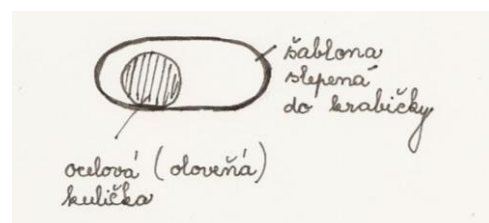 šablona
slepená
do krabičky
ocelová (olověňá)
kulička